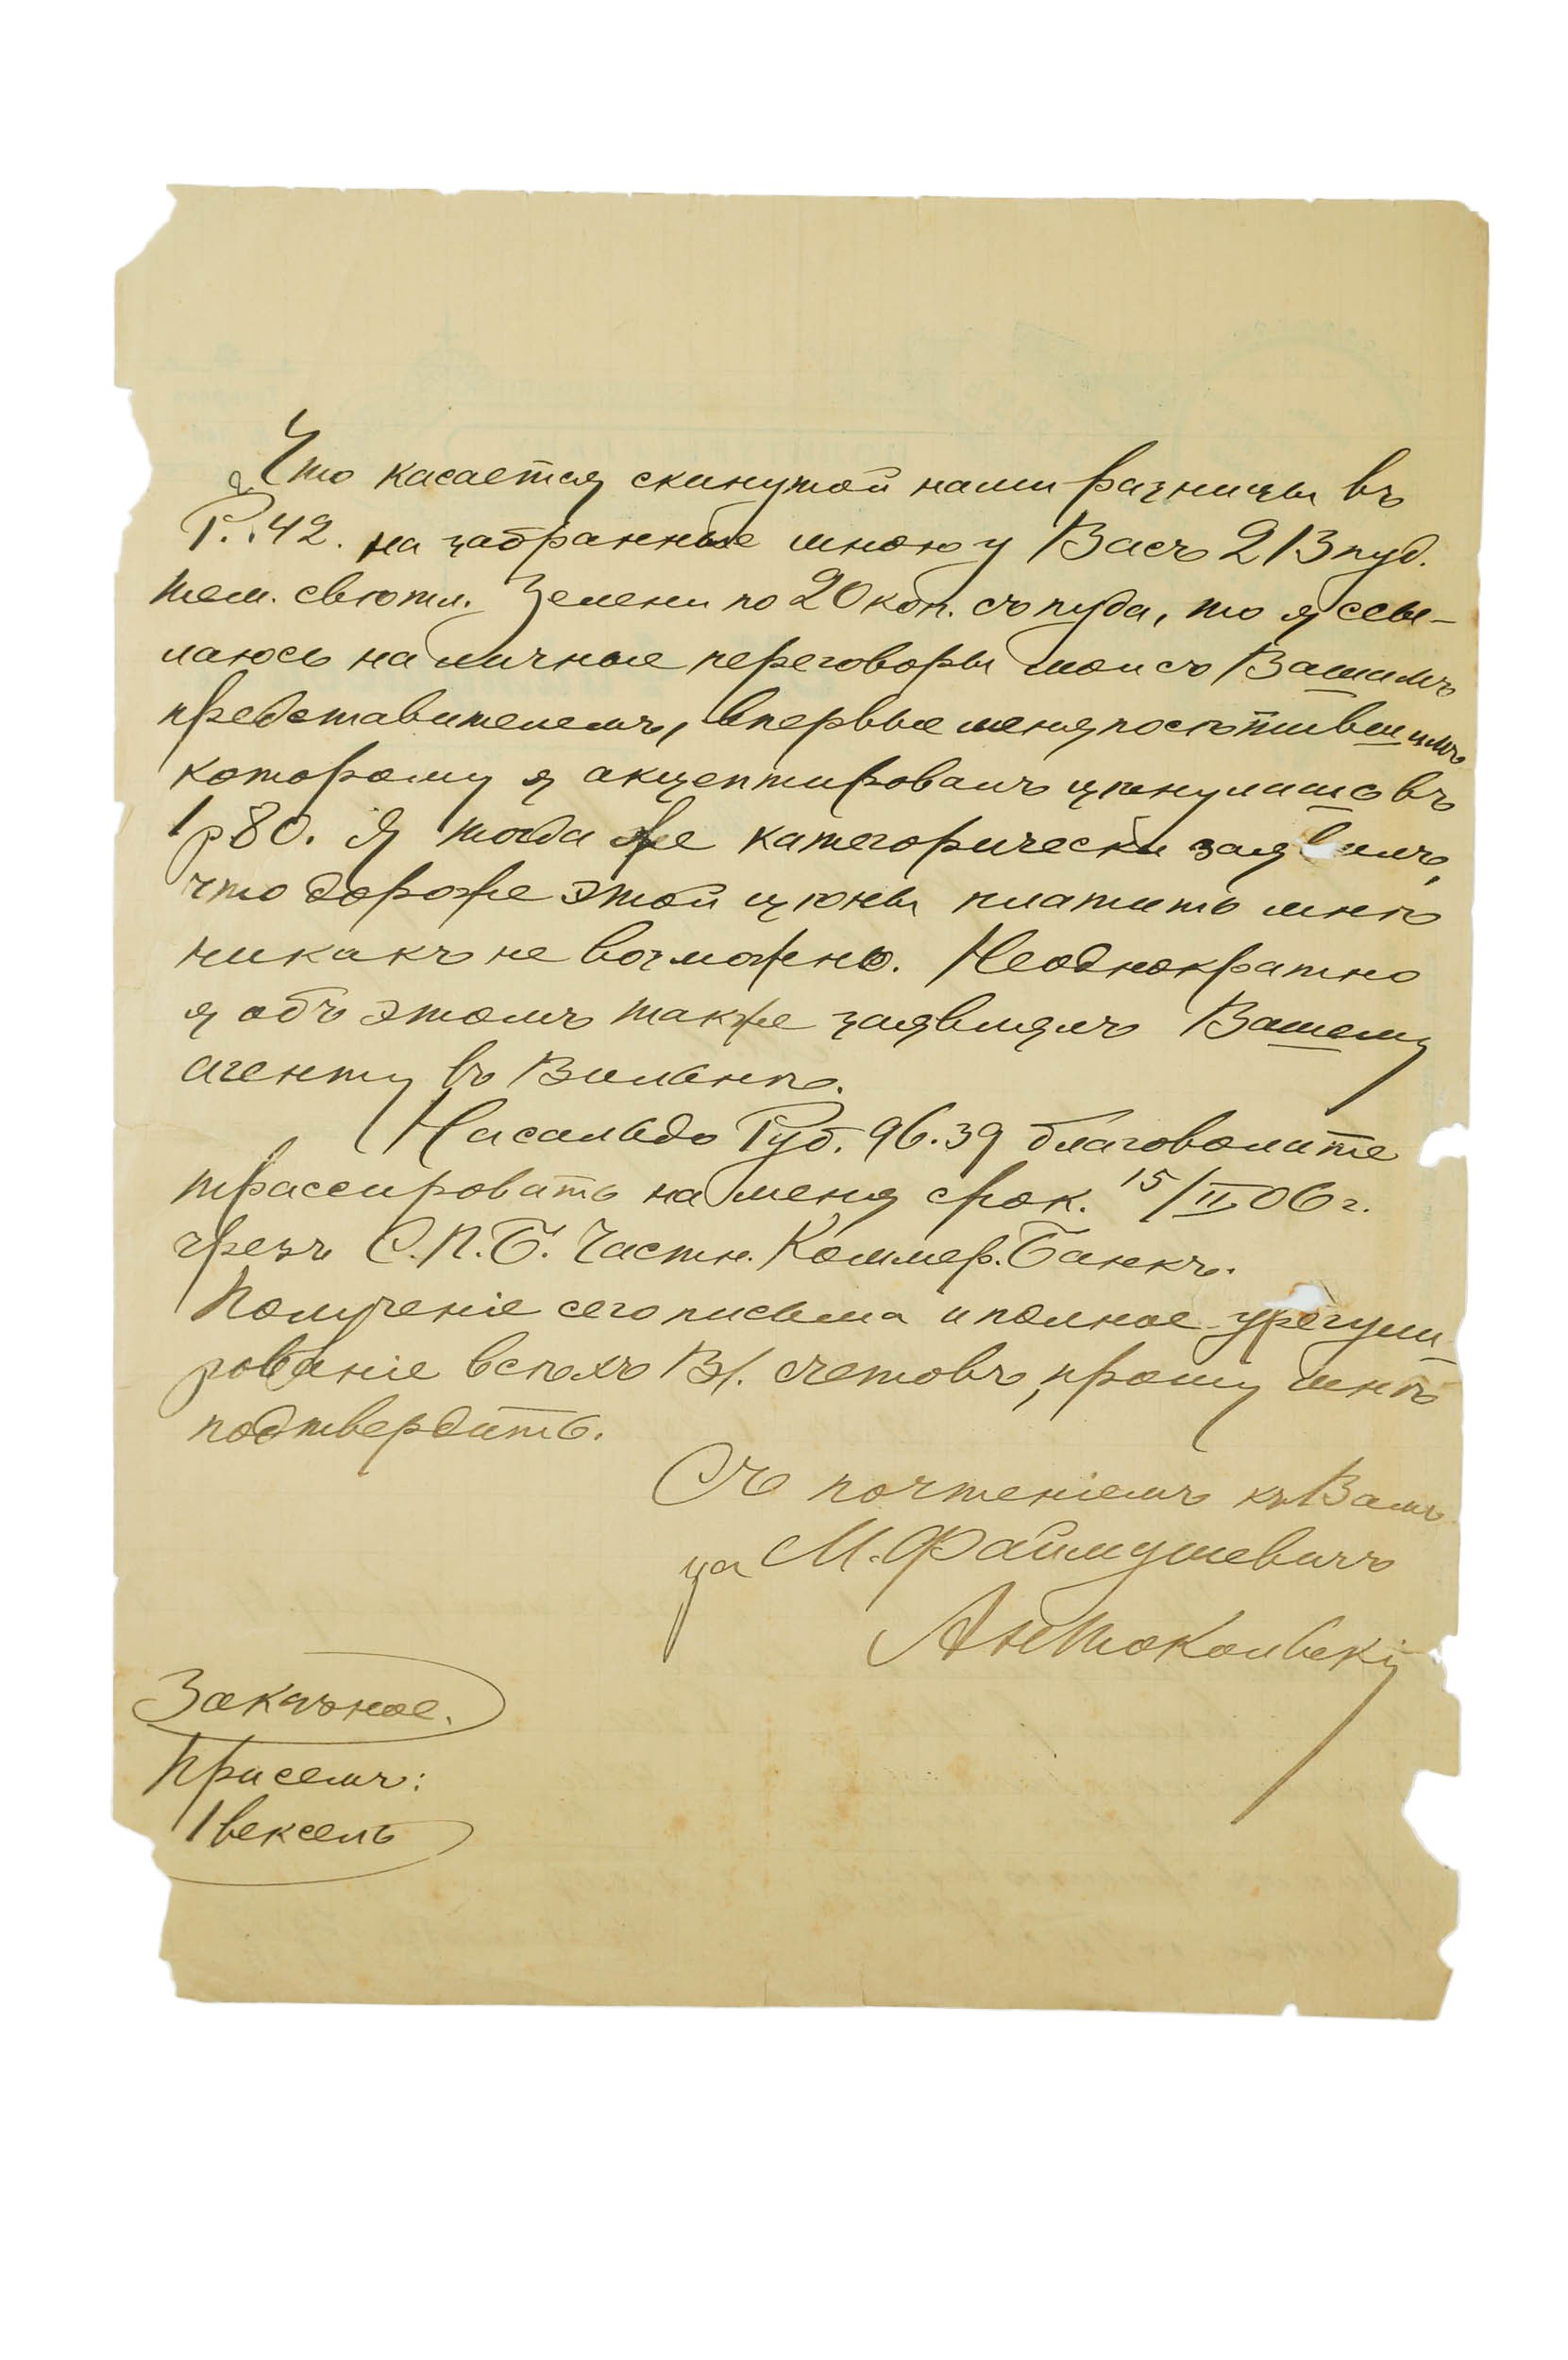 Что касается скинутой нами разницы въ
Р. 42. на забранные мною у Васъ 213 пуд.
тем. свѣтл. Зелени по 20 коп. съ пуда, то я ссы-
лаюсь на личные переговоры мои съ Вашимъ
представителемъ, впервые меня посѣтившимъ
которому я акцептировалъ цѣну лишь въ
1 р 80. Я тогда же категорически заявилъ,
что дороже этой цѣны платить мнѣ
никакъ не возможно. Неоднократно
я объ этомъ также заявлялъ Вашему
агенту въ Вильнѣ.
На сальдо Руб. 96.39 благоволите
трассировать на меня срок. 15/II 06 г.
чрезъ С.П.Б. Частн. Коммер. Банкъ.
Полученіе сего письма и полное урегули-
рованіе всѣхъ В/. счетовъ, прошу мнѣ
подтвердить.
Съ почтеніемъ къ Вамъ
за М. Файмушевичъ
Антокольскій
Заказное.
При семъ:
1 вексель